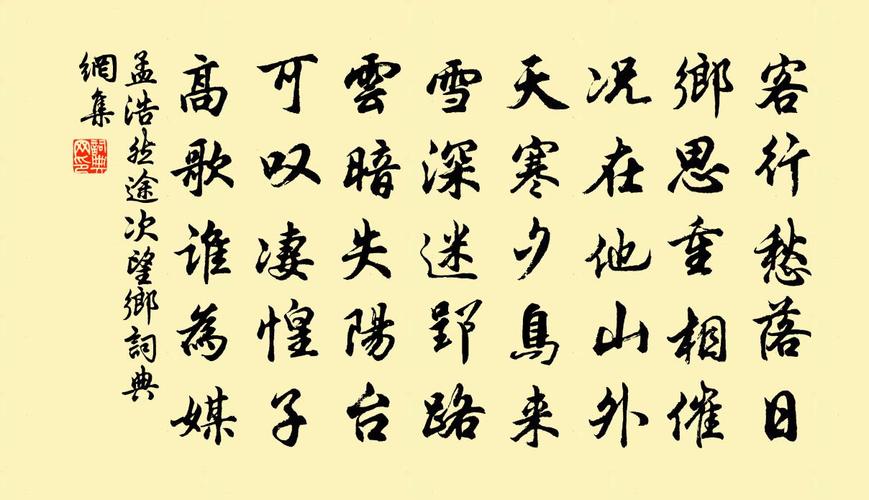 客行愁落日
鄉思重相催
况在他山外
天寒夕鳥来
雪深迷郢路
雲暗失陽台
可叹凄惶子
高歌谁為媒
孟浩然途次望鄉詞典
網集
詞典
网印